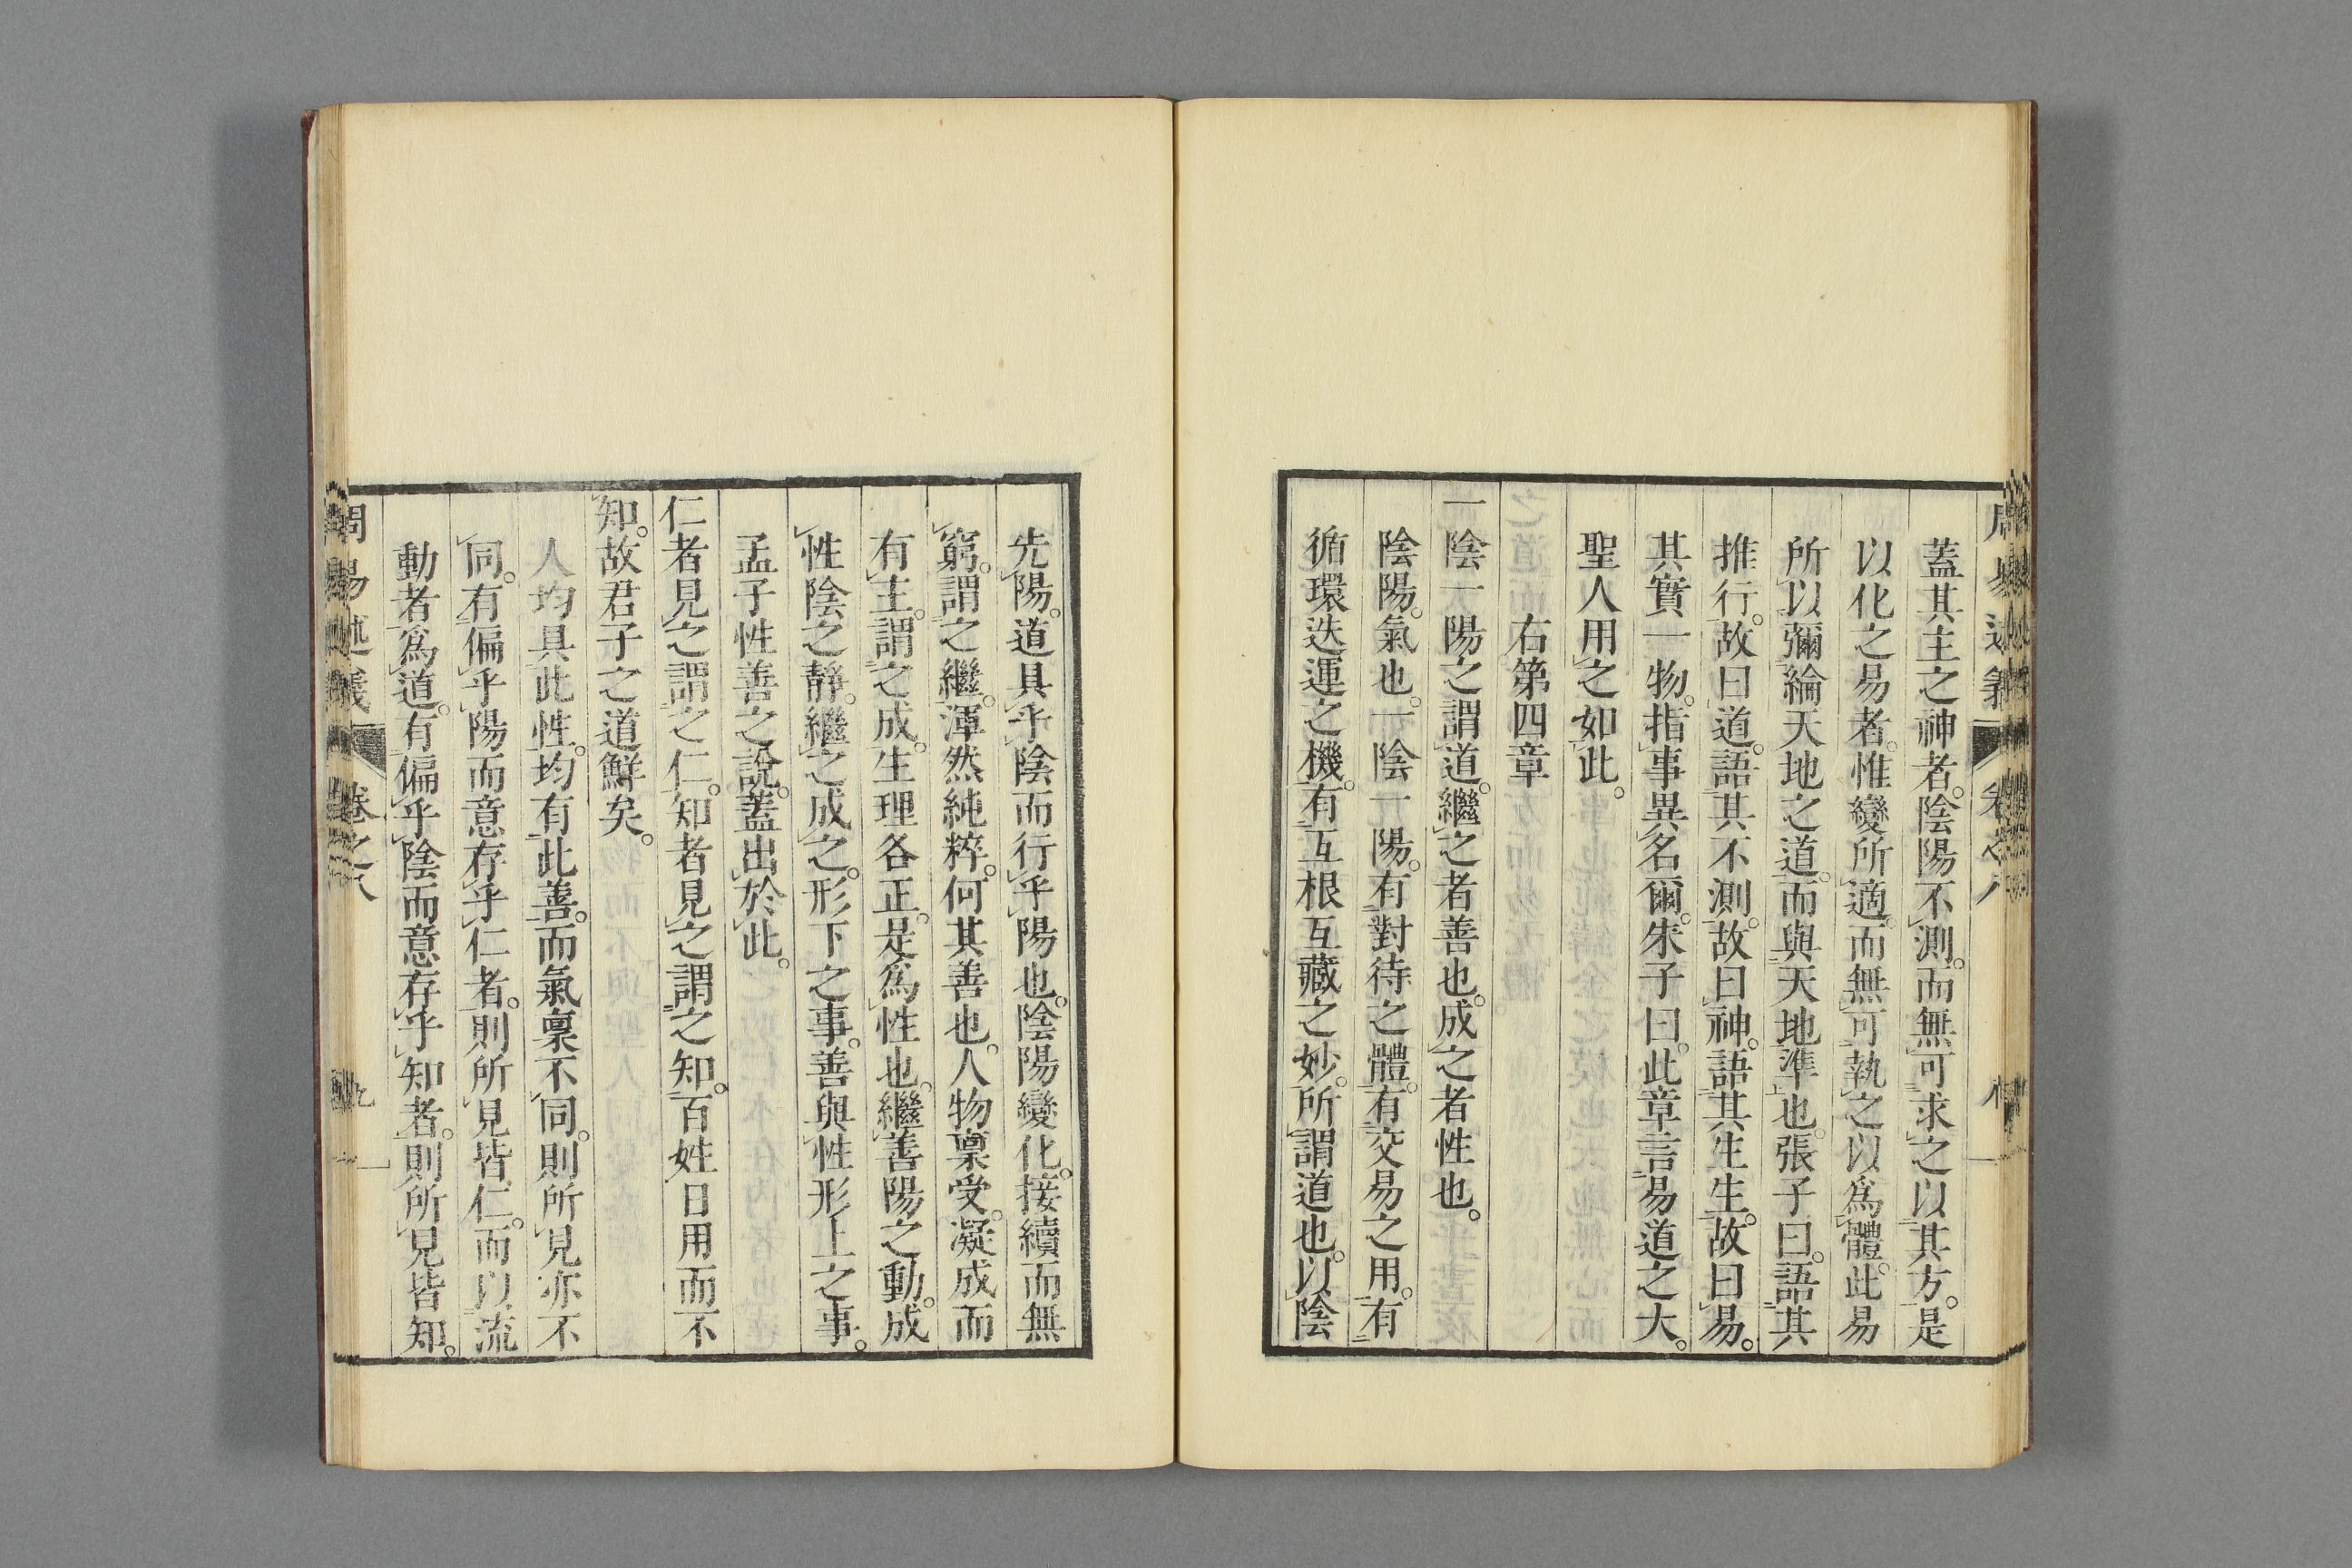 周易述義 卷之八
蓋其主之神者。陰陽不測。而無可求之以其方。是
以化之易者。惟變所適。而無可執之以爲體。此易
所以彌綸天地之道。而與天地準也。張子曰。語其
推行。故曰道。語其不測。故曰神。語其生生。故曰易。
其實一物。指事異名爾。朱子曰。此章言易道之大。
聖人用之如此。
右第四章
一陰一陽之謂道。繼之者善也。成之者性也。
陰陽。氣也。一陰一陽。有對待之體。有交易之用。有
循環迭運之機。有互根互藏之妙。所謂道也。以陰
先陽。道具乎陰而行乎陽也。陰陽變化。接續而無
窮。謂之繼。渾然純粹。何其善也。人物稟受。凝成而
有主。謂之成。生理各正。是爲性也。繼善陽之動。成
性陰之靜。繼之成之。形下之事。善與性形上之事。
孟子性善之說。蓋出於此。
仁者見之謂之仁。知者見之謂之知。百姓日用而不
知。故君子之道鮮矣。
人均具此性。均有此善。而氣稟不同。則所見亦不
同。有偏乎陽而意存乎仁者。則所見皆仁。而以流
動者爲道。有偏乎陰而意存乎知者。則所見皆知。
周易述義 卷之八 九